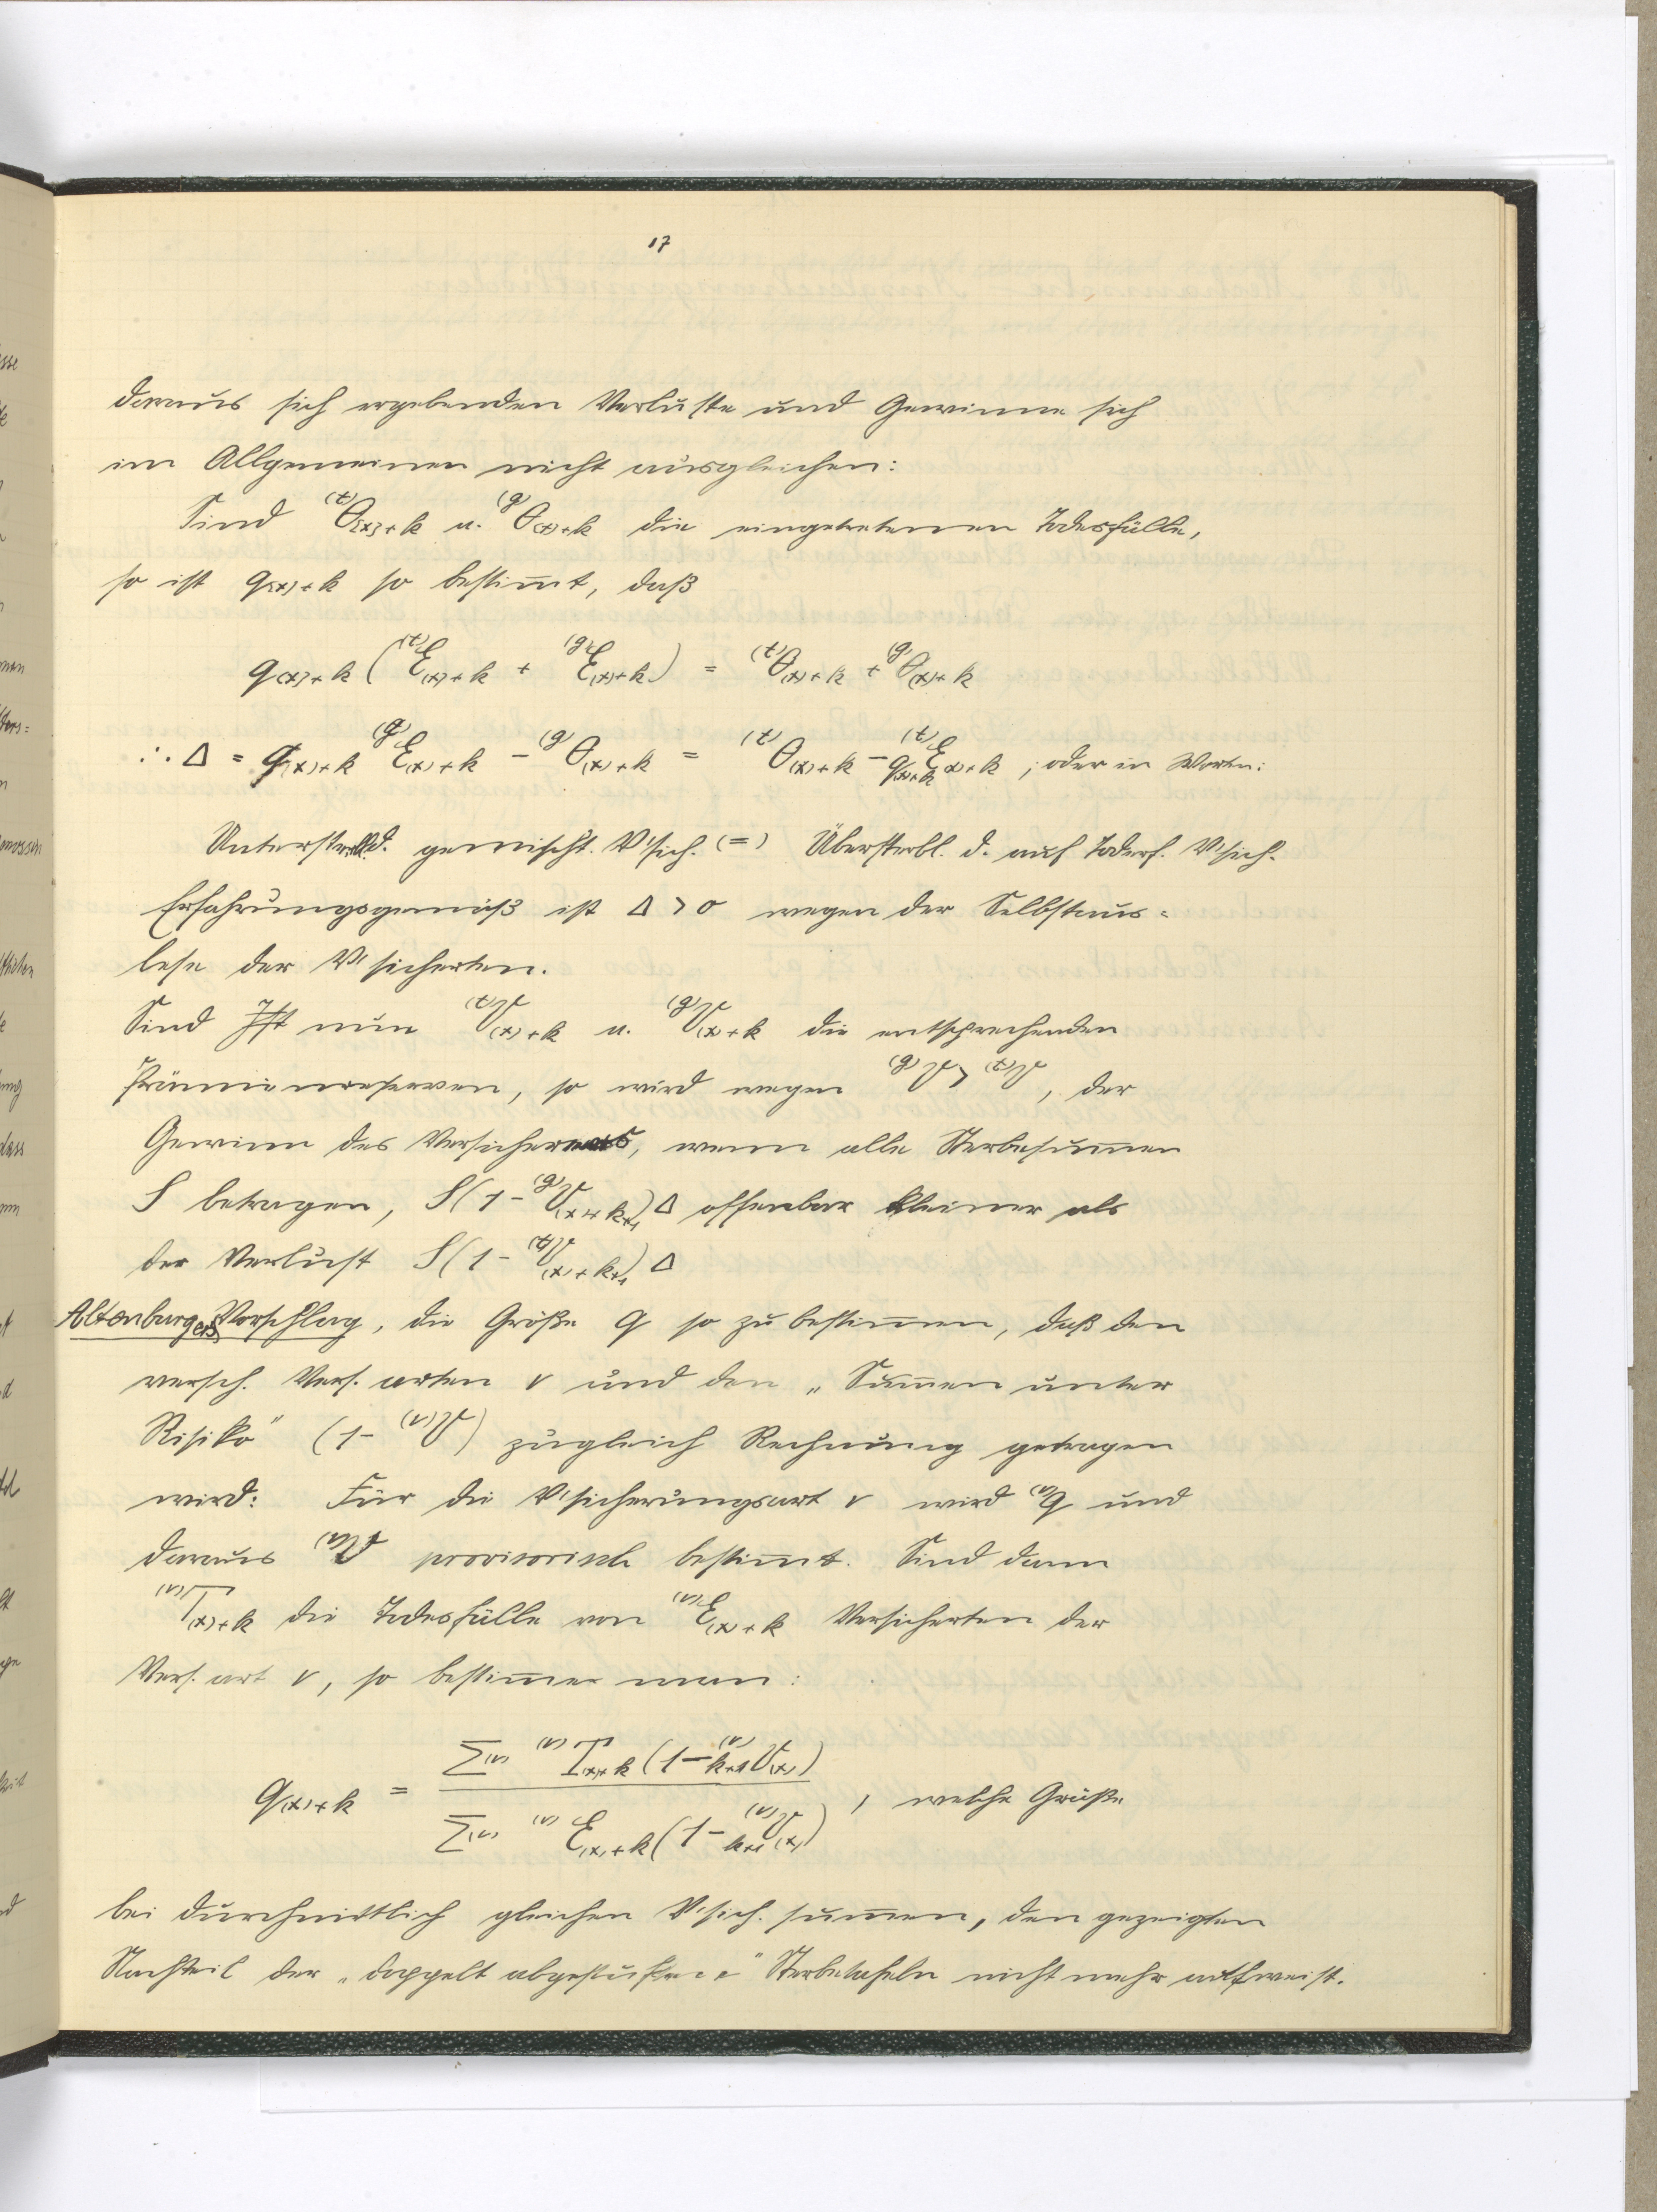 17
daraus sich ergebenden Verluste und Gewinne sich
im Allgemeinen nicht ausgleichen:
Sind ⁽ᵗ⁾θ[x]+k u. ⁽ᵍ⁾θ[x]+k die eingetretenen Todesfälle,
so ist q[x]+k so bestim̅t, daß
q[x]+k (⁽ᵗ⁾E[x]+k + ⁽ᵍ⁾E[x]+k) = ⁽ᵗ⁾θ[x]+k + ⁽ᵍ⁾θ[x]+k
∴ Δ = q[x]+k ⁽ᵍ⁾E[x]+k − ⁽ᵍ⁾θ[x]+k = ⁽ᵗ⁾θ[x]+k − q[x]+k ⁽ᵗ⁾E[x]+k ; oder in Worten:
Untersterbl. d. gemischt. V'sich. (=) Übersterbl. d. auf Todesf. V'sich.
Erfahrungsgemäß ist Δ > 0 wegen der Selbstaus=
lese der V'sicherten.
Sind Ist nun ⁽ᵗ⁾V[x]+k u. ⁽ᵍ⁾V[x]+k die entsprechenden
Prämienreserven, so wird wegen ⁽ᵍ⁾V > ⁽ᵗ⁾V, der
Gewinn des Versicherers, wenn alle Sterbesum̅en
S betragen, S(1 − ⁽ᵍ⁾V[x]+k+1) Δ offenbar kleiner als
der Verlust S(1 − ⁽ᵗ⁾V[x]+k+1) Δ
Altenburgers Vorschlag, die Größe q so zu bestim̅en, daß den
versch. Vers. arten ν und den „Sum̅en unter
Risiko" (1 − ⁽ᵛ⁾V) zugleich Rechnung getragen
wird: Für die V'sicherungsart ν wird ⁽ᵛ⁾q und
daraus ⁽ᵛ⁾V provisorisch bestim̅t. Sind dann
⁽ᵛ⁾T[x]+k die Todesfälle von ⁽ᵛ⁾E[x]+k Versicherten der
Vers. art ν, so bestim̅e man:
q[x]+k = Σ⁽ᵛ⁾ ⁽ᵛ⁾T[x]+k (1 − ⁽ᵛ⁾k+1V[x]) / Σ⁽ᵛ⁾ ⁽ᵛ⁾E[x]+k (1 − ⁽ᵛ⁾k+1V[x]) , welche Größe
bei durchnittlich gleichen V'sich. sum̅en, den gezeigten
Nachteil der „doppelt abgestuften" Sterbetafeln nicht mehr aufweist.